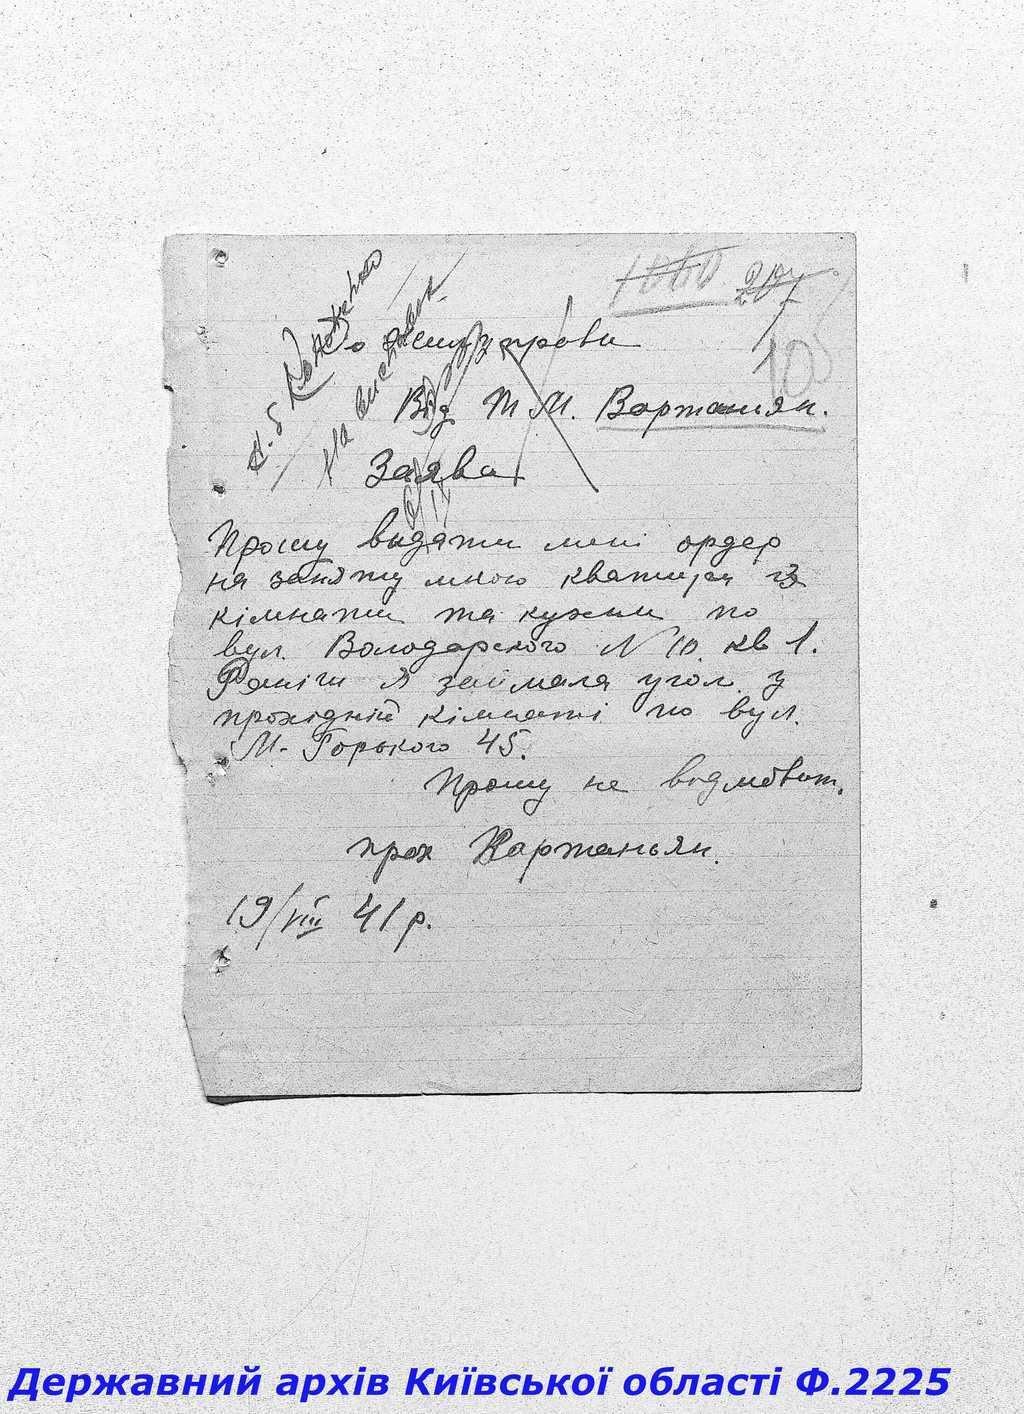 1060 207
105
До Жилуправи
Від Т М. Вартаньян.
Заява
На
Прошу видати мені ордер
на заняту мною кватиру із
кімнати та кухни по
вул. Володарского № 10. кв 1.
Раніш я займала угол у
прохідній кімнаті по вул.
М. Горького 45.
Прошу не відмовит.
прох Вартаньян.
19/VIII 41 р.
Державний архів Київської області Ф.2225